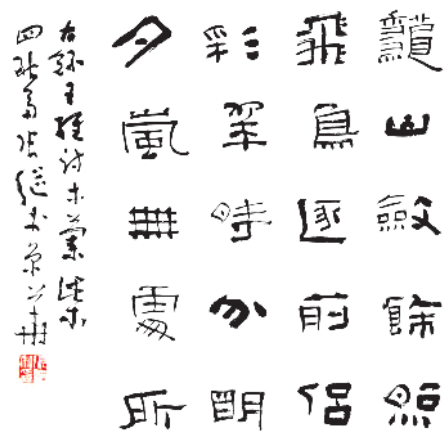 龝山斂餘照
飛鳥逐前侶
彩翠時分明
夕嵐無處所
右錄王維詩木蘭柴